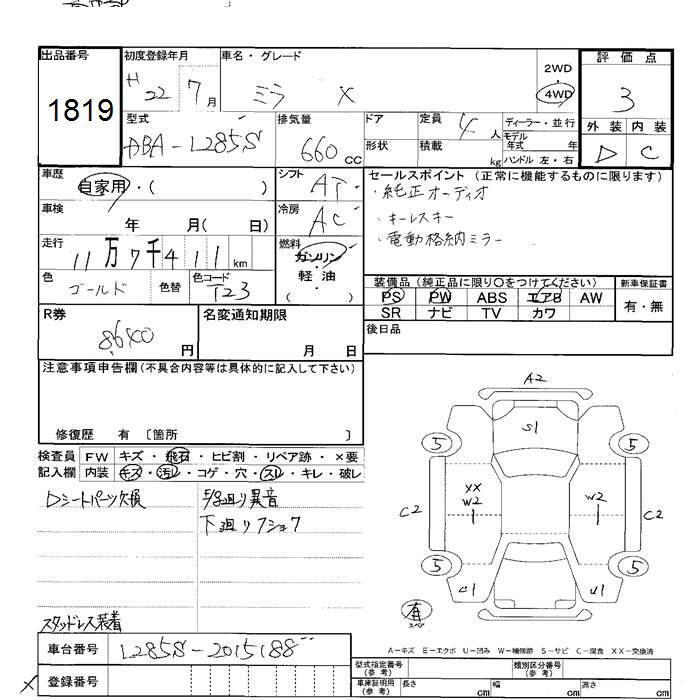 出品番号
1819
初度登録年月
H 22 7月
車名・グレード
ミラ X
2WD
4WD
評価点
3
外装 内装
D C
型式
DBA-L285S
排気量
660 cc
ドア
形状
定員 4 人
積載 kg
ディーラー・並行
モデル年式 年
ハンドル 左・右
車歴
自家用・( )
シフト
AT
セールスポイント (正常に機能するものに限ります)
・純正オーディオ
・キーレスキー
・電動格納ミラー
車検
年 月( 日)
冷房
AC
走行
11万7千411km
燃料
ガソリン
軽油
( )
色
ゴールド
色替
色コード
T23
装備品 (純正品に限り○をつけてください)
PS PW ABS エアB AW
SR ナビ TV カワ
新車保証書
有・無
R券
円
名変通知期限
月 日
後日品
注意事項申告欄(不具合内容等は具体的に記入して下さい)
修復歴 有 〔箇所 〕
検査員記入欄
FW キズ・飛石・ヒビ割・リペア跡・×要
内装 キズ・汚レ・コゲ・穴・スレ・キレ・破レ
Dシートパーツ欠損
下廻り異音
下廻りフショク
スタッドレス装着
A2
S1
5 5
XX
W2
W2
C2 C2
5 5
C1 U1
有
スペア
A-キズ E-エクボ U-凹み W-補修跡 S-サビ C-腐食 XX-交換済
車台番号
L285S-2015188
登録番号
型式指定番号(参考)
類別区分番号(参考)
車庫証明用(参考)
長さ cm 幅 cm 高さ cm